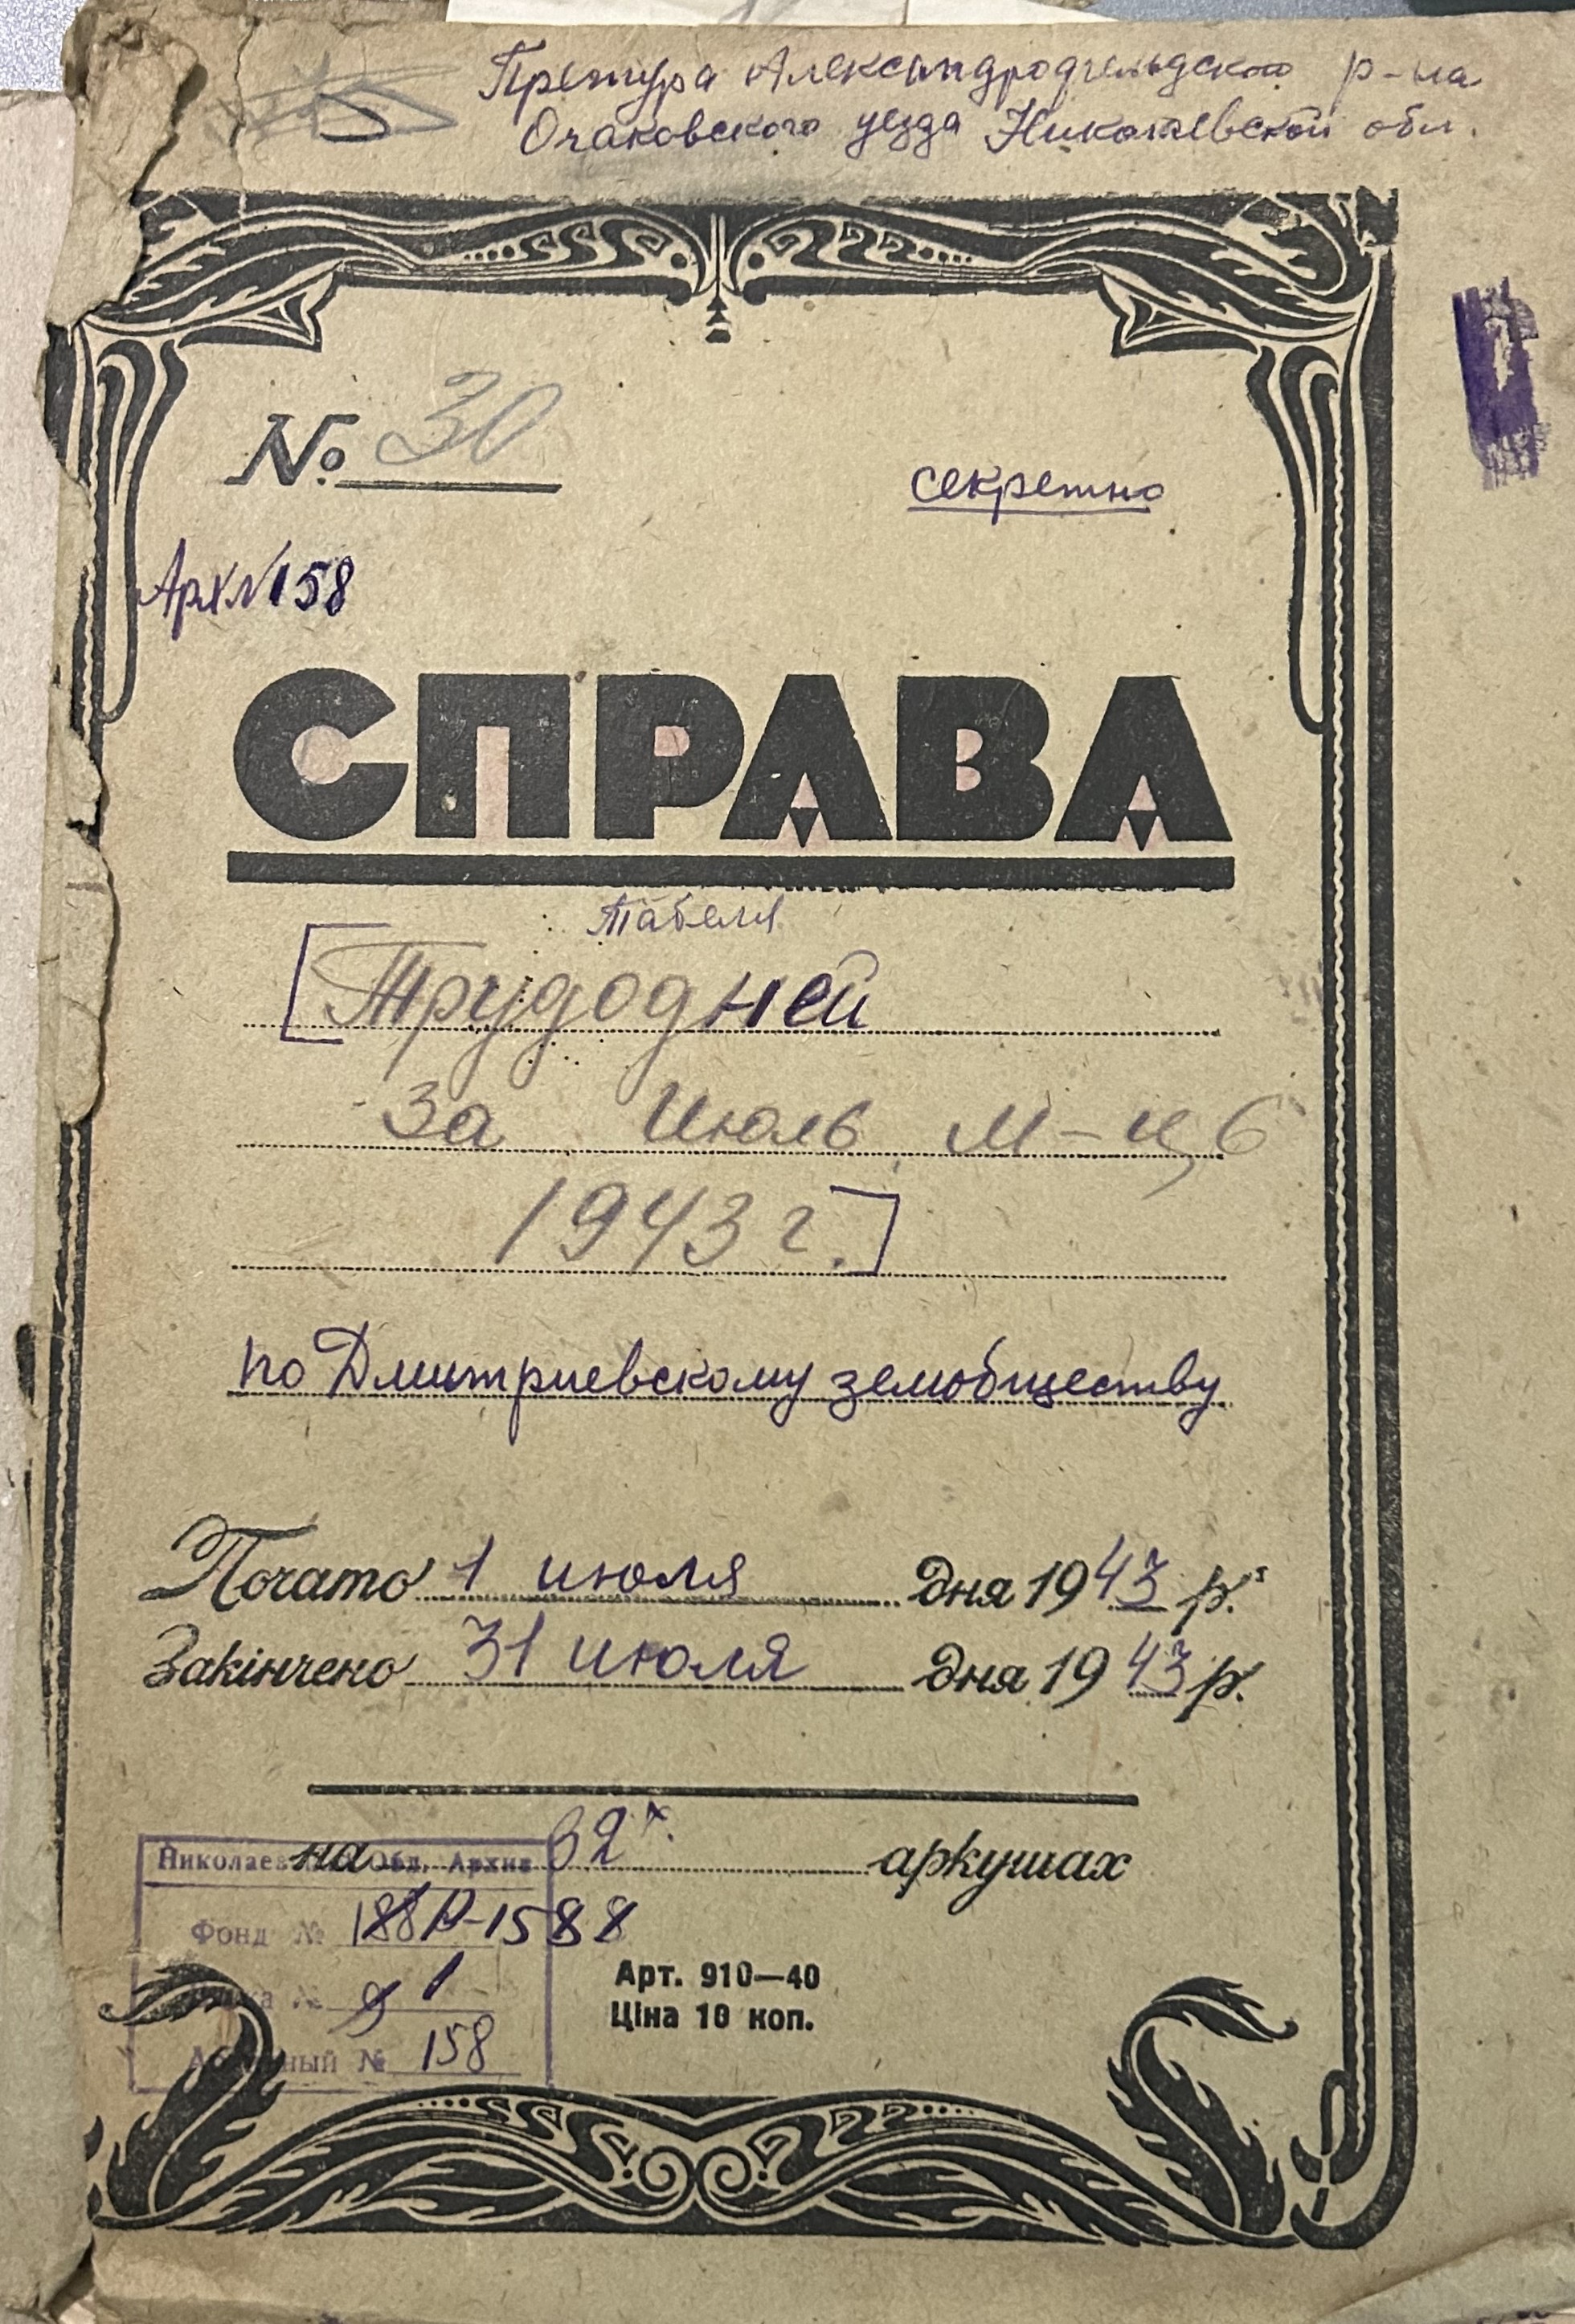 Претура Александродгельдского р-на
Очаковского уезда Николаевской обл.
№ 30
секретно
Арх№158
СПРАВА
табеля
[Трудодней
За Июль м-ць
1943 г.]
по Дмитриевскому земобществу
Почато 1 июля дня 1943 р.
Закінчено 31 июля дня 1943 р.
на 62х. аркушах
Николаев Обл. Архив
Фонд № Р-1588
№ 1
№ 158
Арт. 910—40
Ціна 10 коп.